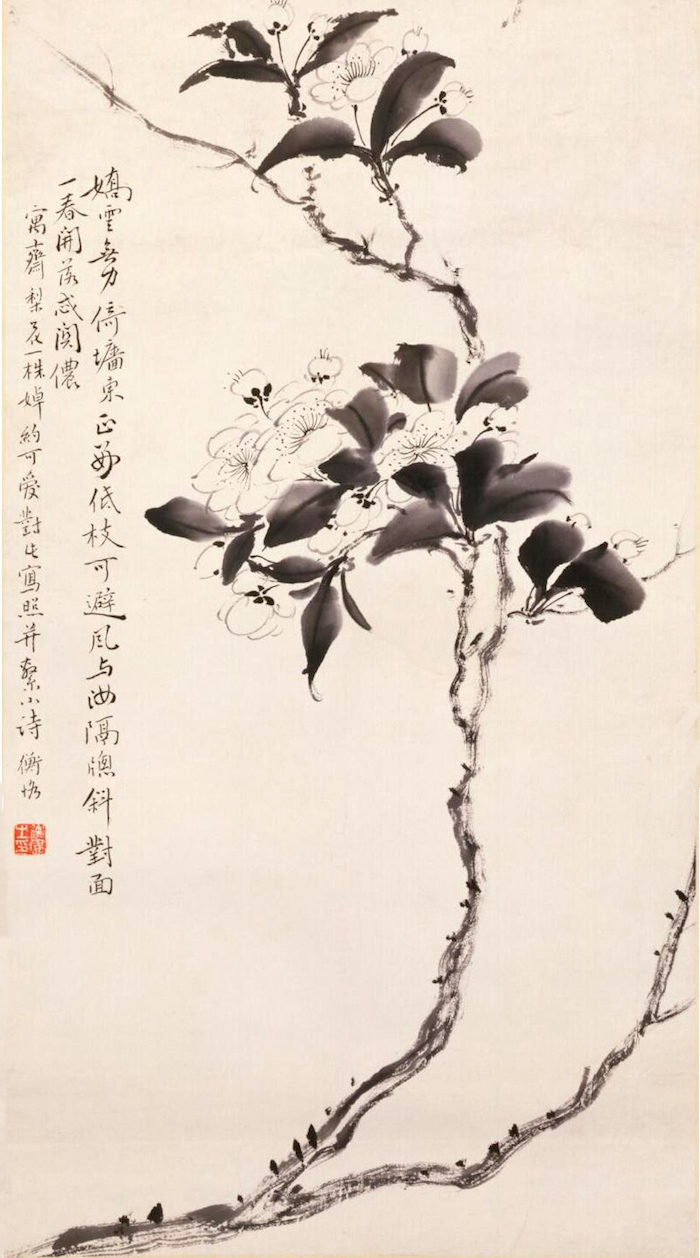 嬌雲無力倚墻東正低枝可避風与汝隔牕斜對面
一春開落忒関儂
寓齋梨花一株婥約可愛對此寫照并繫小詩 衡恪